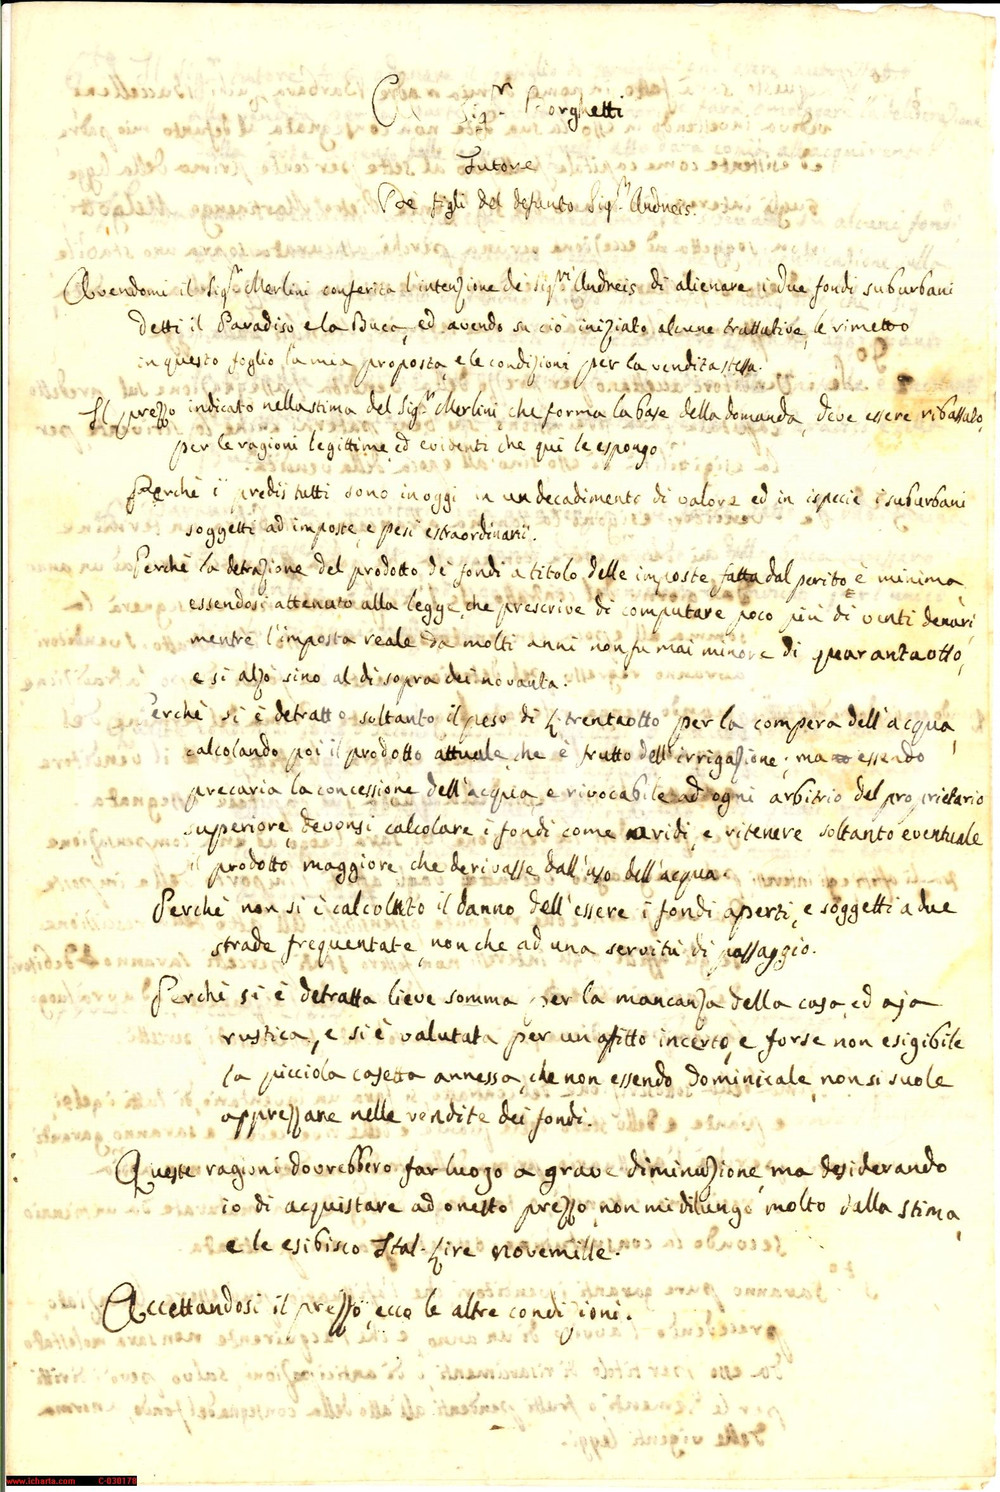 Al Sig.r Borghetti
Tutore
De' figli del defunto Sig.r Andreis.
Avendomi il Sig.r Merlini conferita l'intenzione de' Sig.ri Andreis di alienare i due fondi suburbani
detti il Paradiso e la Buca, ed avendo su ciò iniziato alcune trattative, le rimetto
in questo foglio la mia proposta, e le condizioni per la vendita stessa.
Il prezzo indicato nella stima del Sig.r Merlini, che forma la base della domanda, deve essere ribassato,
per le ragioni legittime, ed evidenti che quì le espongo
Perchè i predis tutti sono in oggi in un decadimento di valore ed in ispecie i suburbani
soggetti ad imposte, e pesi estraordinarii.
Perchè la detrazione del prodotto dei fondi a titolo delle imposte, fatta dal perito è minima,
essendosi attenuto alla legge, che prescrive di computare poco più di venti denari,
mentre l'imposta reale da molti anni non fu mai minore di quarantaotto,
e si alzò sino al di sopra dei novanta.
Perchè si è detratto soltanto il peso di L. trentaotto per la compera dell'acqua,
calcolando poi il prodotto attuale, che è frutto dell'irrigazione; ma essendo
precaria la concessione dell'acqua e rivocabile ad ogni arbitrio del proprietario
superiore, devonsi calcolare i fondi come aridi, e ritenere soltanto eventuale
il prodotto maggiore che derivasse dall'uso dell'acqua.
Perchè non si è calcolato il danno dell'essere i fondi aperti, e soggetti a due
strade frequentate, non che ad una servitù di passaggio.
Perchè si è detratta lieve somma per la mancanza della casa, ed aja
rustica, e si è valutata per un afitto incerto, e forse non esigibile
la picciola casetta annessa, che non essendo dominicale, non si suole
apprezzare nelle vendite dei fondi.
Queste ragioni dovrebbero far luogo a grave diminuzione, ma desiderando
io di acquistare ad onesto prezzo, non mi dilungo molto dalla stima,
e le esibisco Ital. Lire novemille.
Accettandosi il prezzo, ecco le altre condizioni.
www.icharta.com C-030170